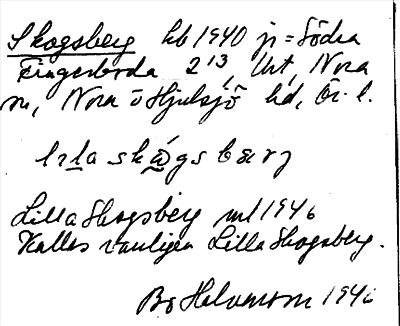 Skogsberg hb 1940 js = Södra
Fingerboda 2¹³, Urt, Nora
m, Nora o Hjulsjö hd, Ör. l.
lɩla skǫ́gsbærj
Lilla Skogsberg ml 1946
Kallas vanligen Lilla Skogsberg.
1946